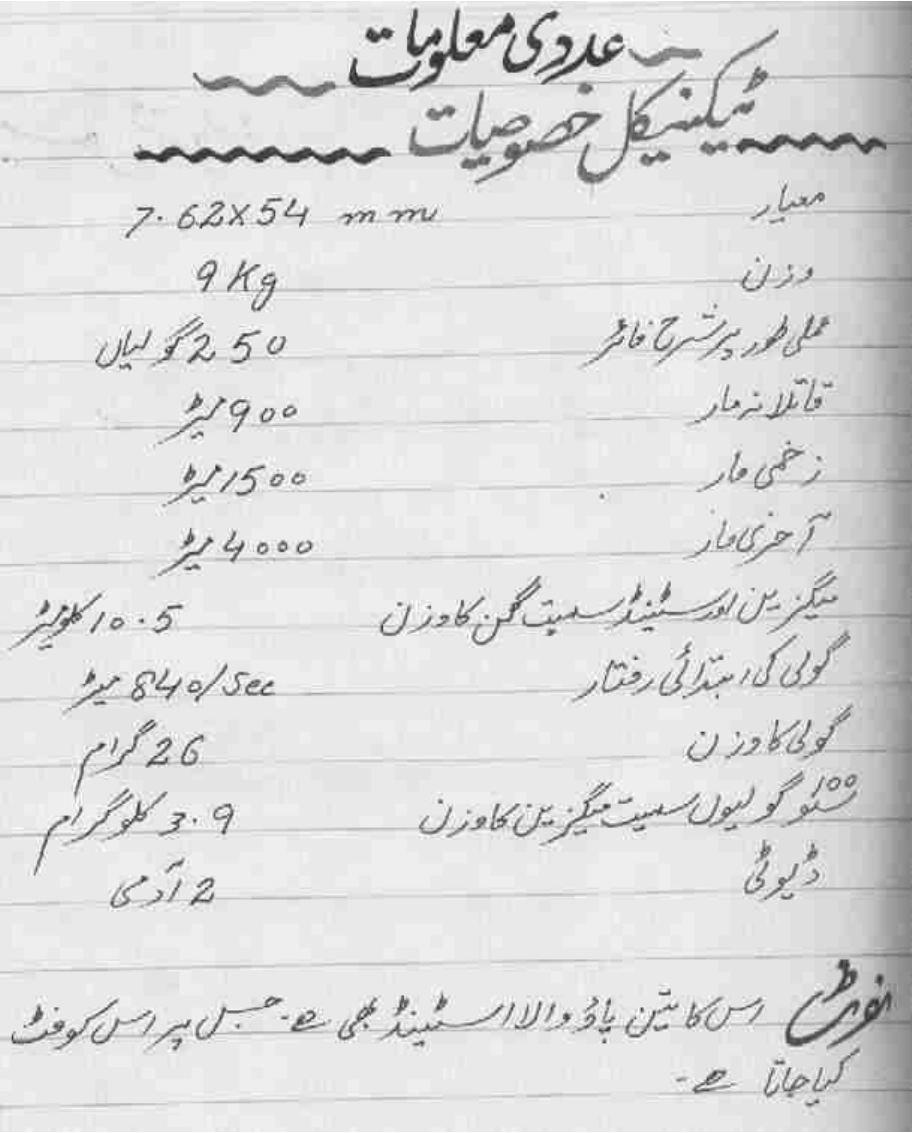 عددی معلومات
ٹیکنیکل خصوصیات
معیار 7.62X54 mm
وزن 9 Kg
عملی طور پر شرح فائر 250 گولیاں
قاتلانہ مار 900 میٹر
زخمی مار 1500 میٹر
آخری مار 4000 میٹر
میگزین اور سٹینڈ سمیت گن کا وزن 10.5 کلومیٹر
گولی کی ابتدائی رفتار 840/Sec میٹر
گولی کا وزن 26 گرام
100 سو گولیوں سمیت میگزین کا وزن 3.9 کلوگرام
ڈیوٹی 2 آدمی
نوٹ اس کا تین پاؤ والا اسٹینڈ بھی ہے۔ جس پر اس کو فٹ
کیا جاتا ہے۔